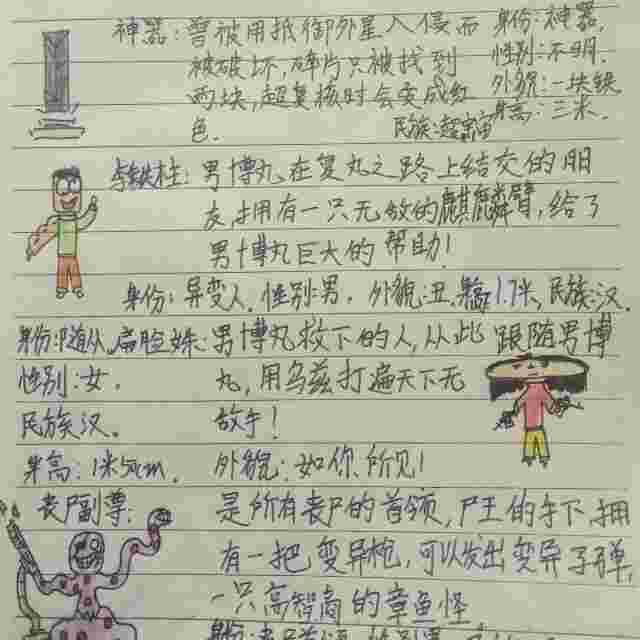 神器:曾被用抵御外星入侵而 身份:神器,
被破坏,碎片只被找到 性别:不明.
两块,超复核时会变成红 外貌:一块铁
色. 民族:超宇宙 身高:三米.
李铁柱:男博丸在复丸之路上结交的朋
友,拥有一只无敌的麒麟臂,给了
男博丸巨大的帮助!
身份:异变人.性别:男,外貌:丑,身高1.7米,民族:汉.
身份:随从.扁脸妹:男博丸救下的人,从此跟随男博
性别:女. 丸,用乌兹打遍天下无
民族汉. 敌手!
身高:1米5cm. 外貌:如你所见!
丧尸副尊: 是所有丧尸的首领,尸王的手下拥
有一把变异枪,可以发出变异子弹,
一只高智商的章鱼怪
身份: